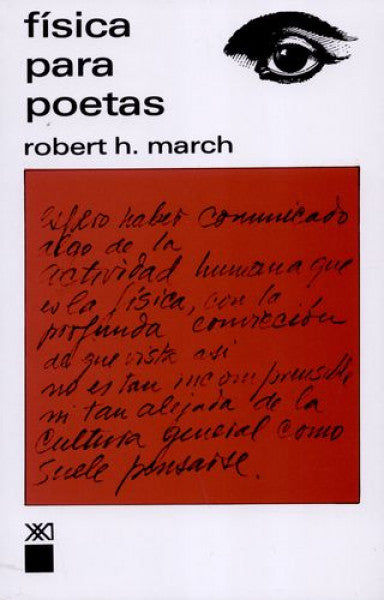 física
para
poetas
robert h. march
espero haber comunicado
algo de la
actividad humana que
es la física, con la
profunda convicción
de que vista así
no es tan incomprensible
ni tan alejada de la
cultura general como
suele pensarse.
XXI